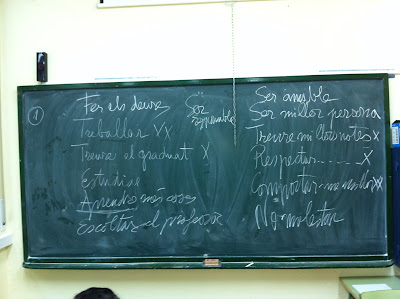 1
Fer els deures
Treballar VX
Treure el graduat X
Estudiar
Aprendre més coses
Escoltar el professor
Ser
responsable
Ser amable
Ser millor persona
Treure millors notes X
Respectar......X
Comportar-me millor XX
No molestar